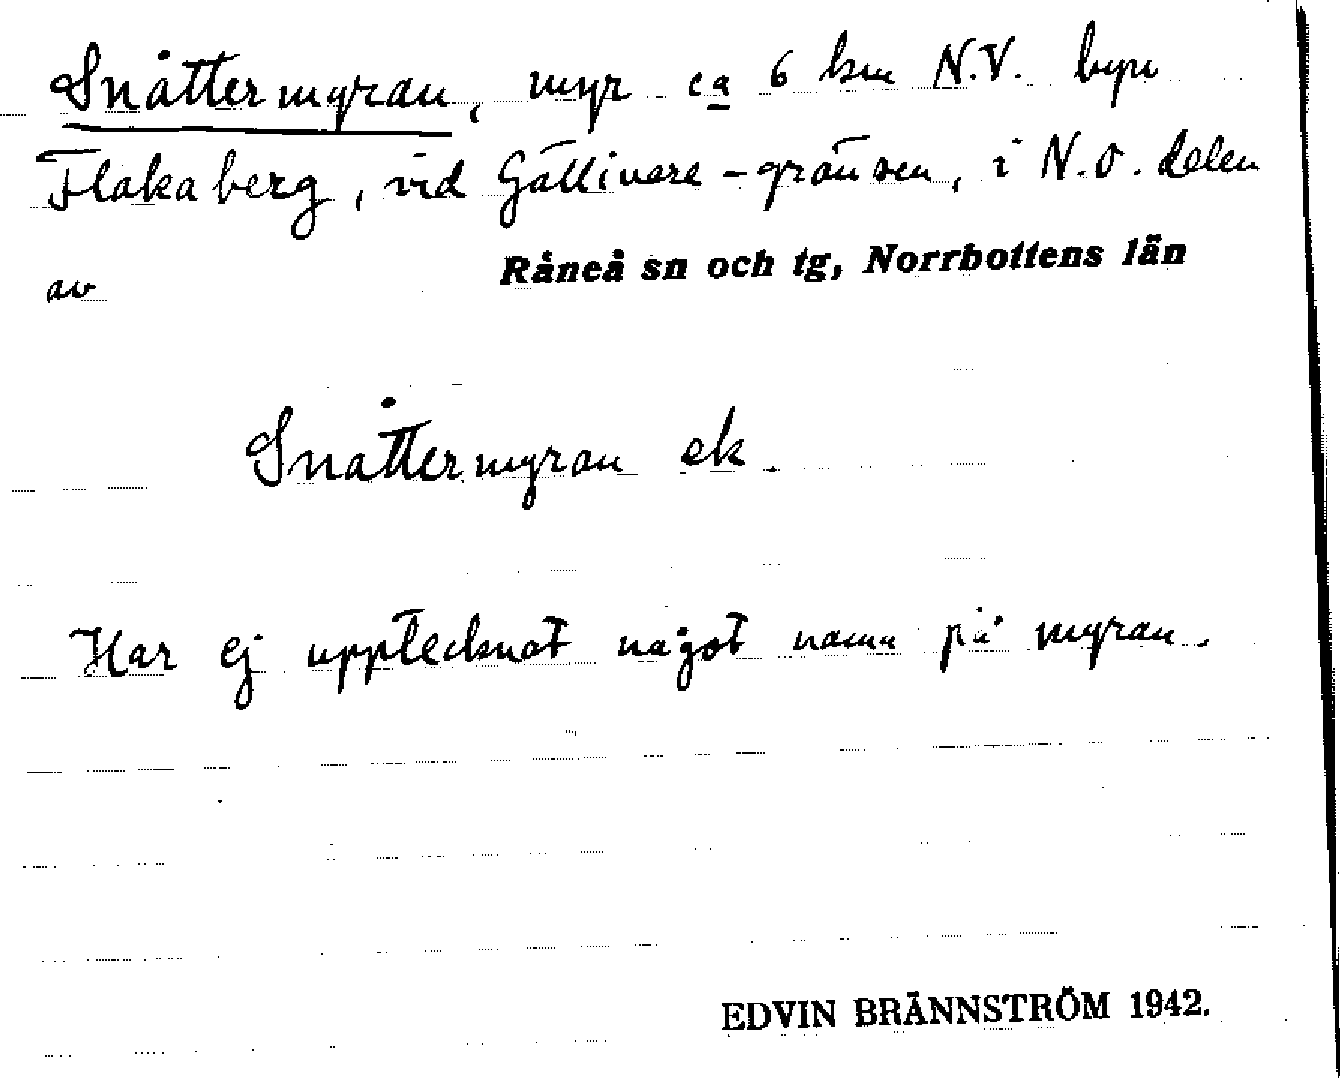 Snåttermyran, myr ca 6 km N.V. byn
Flakaberg, vid Gällivare-gränsen, i N.O. delen
av Råneå sn och tg, Norrbottens län
Snåttermyran ek.
Har ej upptecknat något namn på myran.
EDVIN BRÄNNSTRÖM 1942.